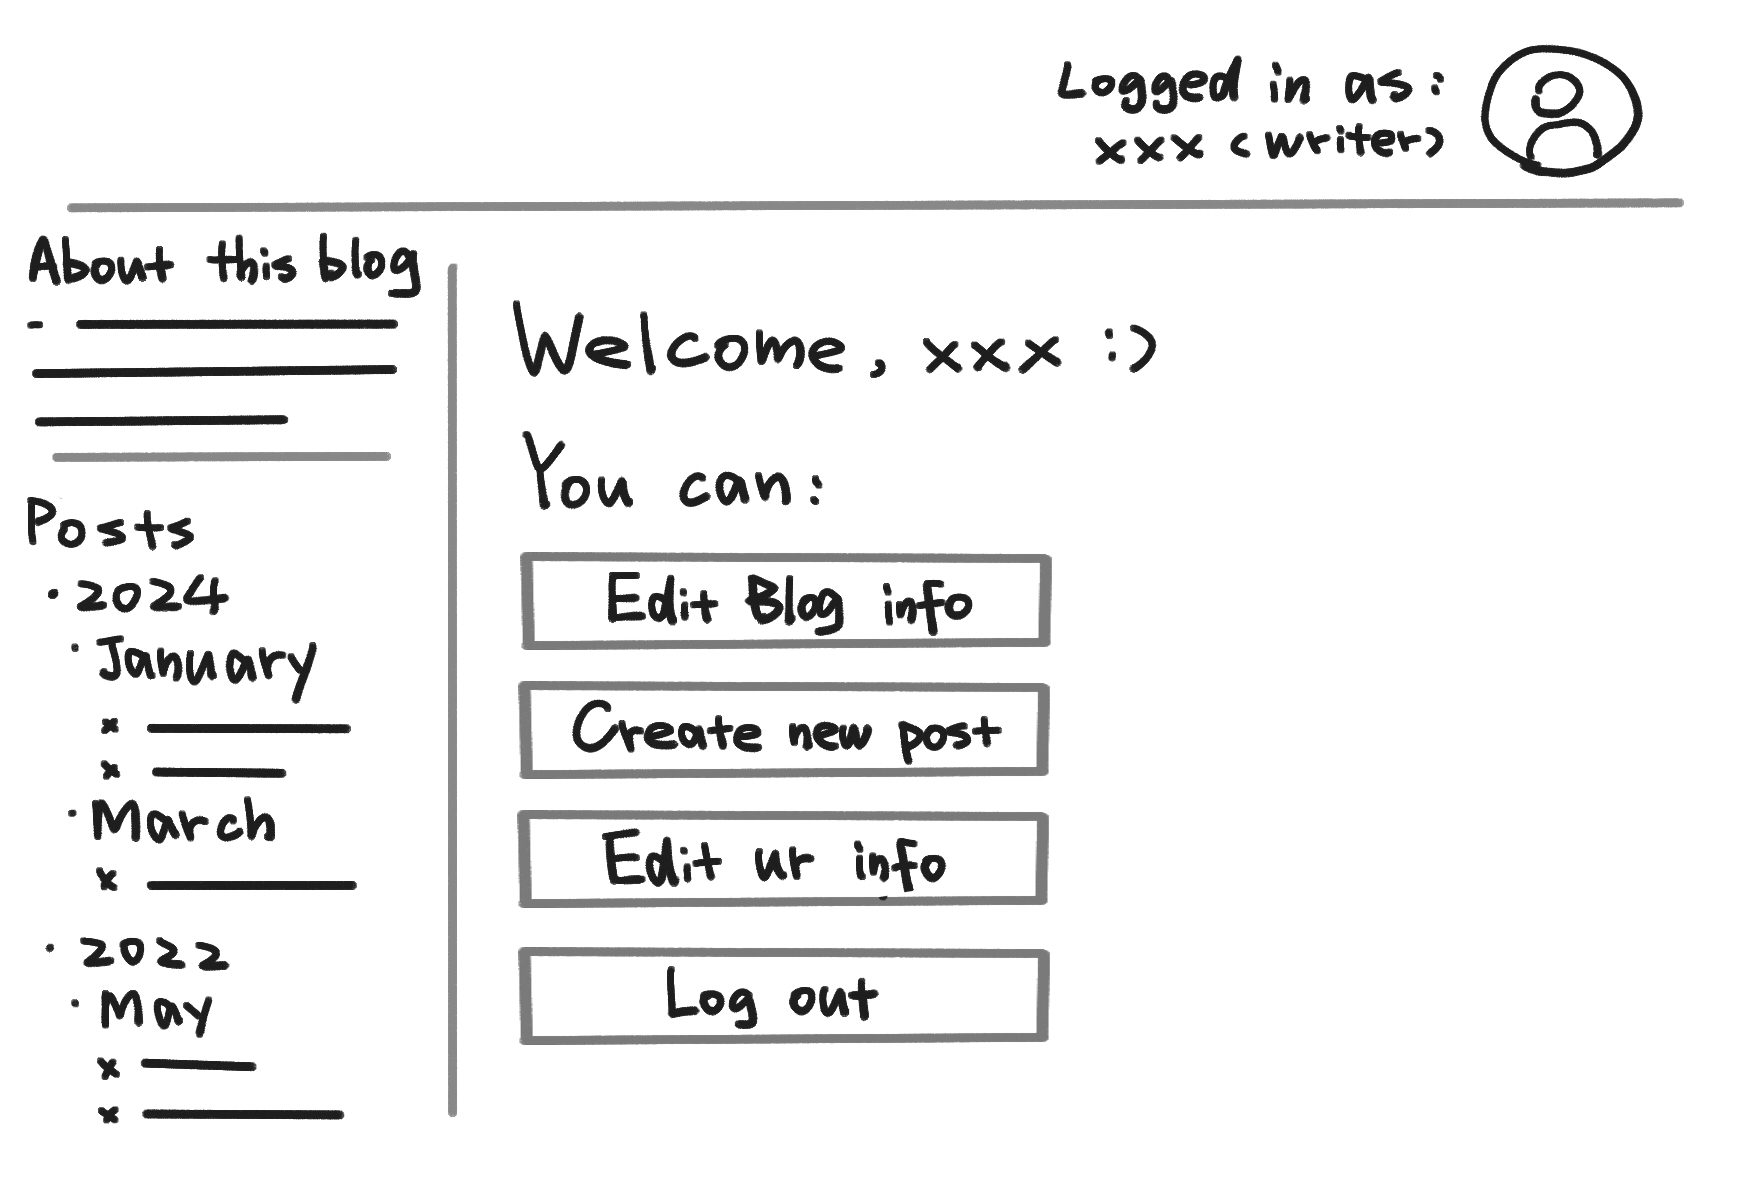 Logged in as:
xxx (writer)
About this blog
-
Posts
· 2024
· January
x
x
· March
x
· 2022
· May
x
x
Welcome, xxx :)
You can:
Edit Blog info
Create new post
Edit ur info
Log out